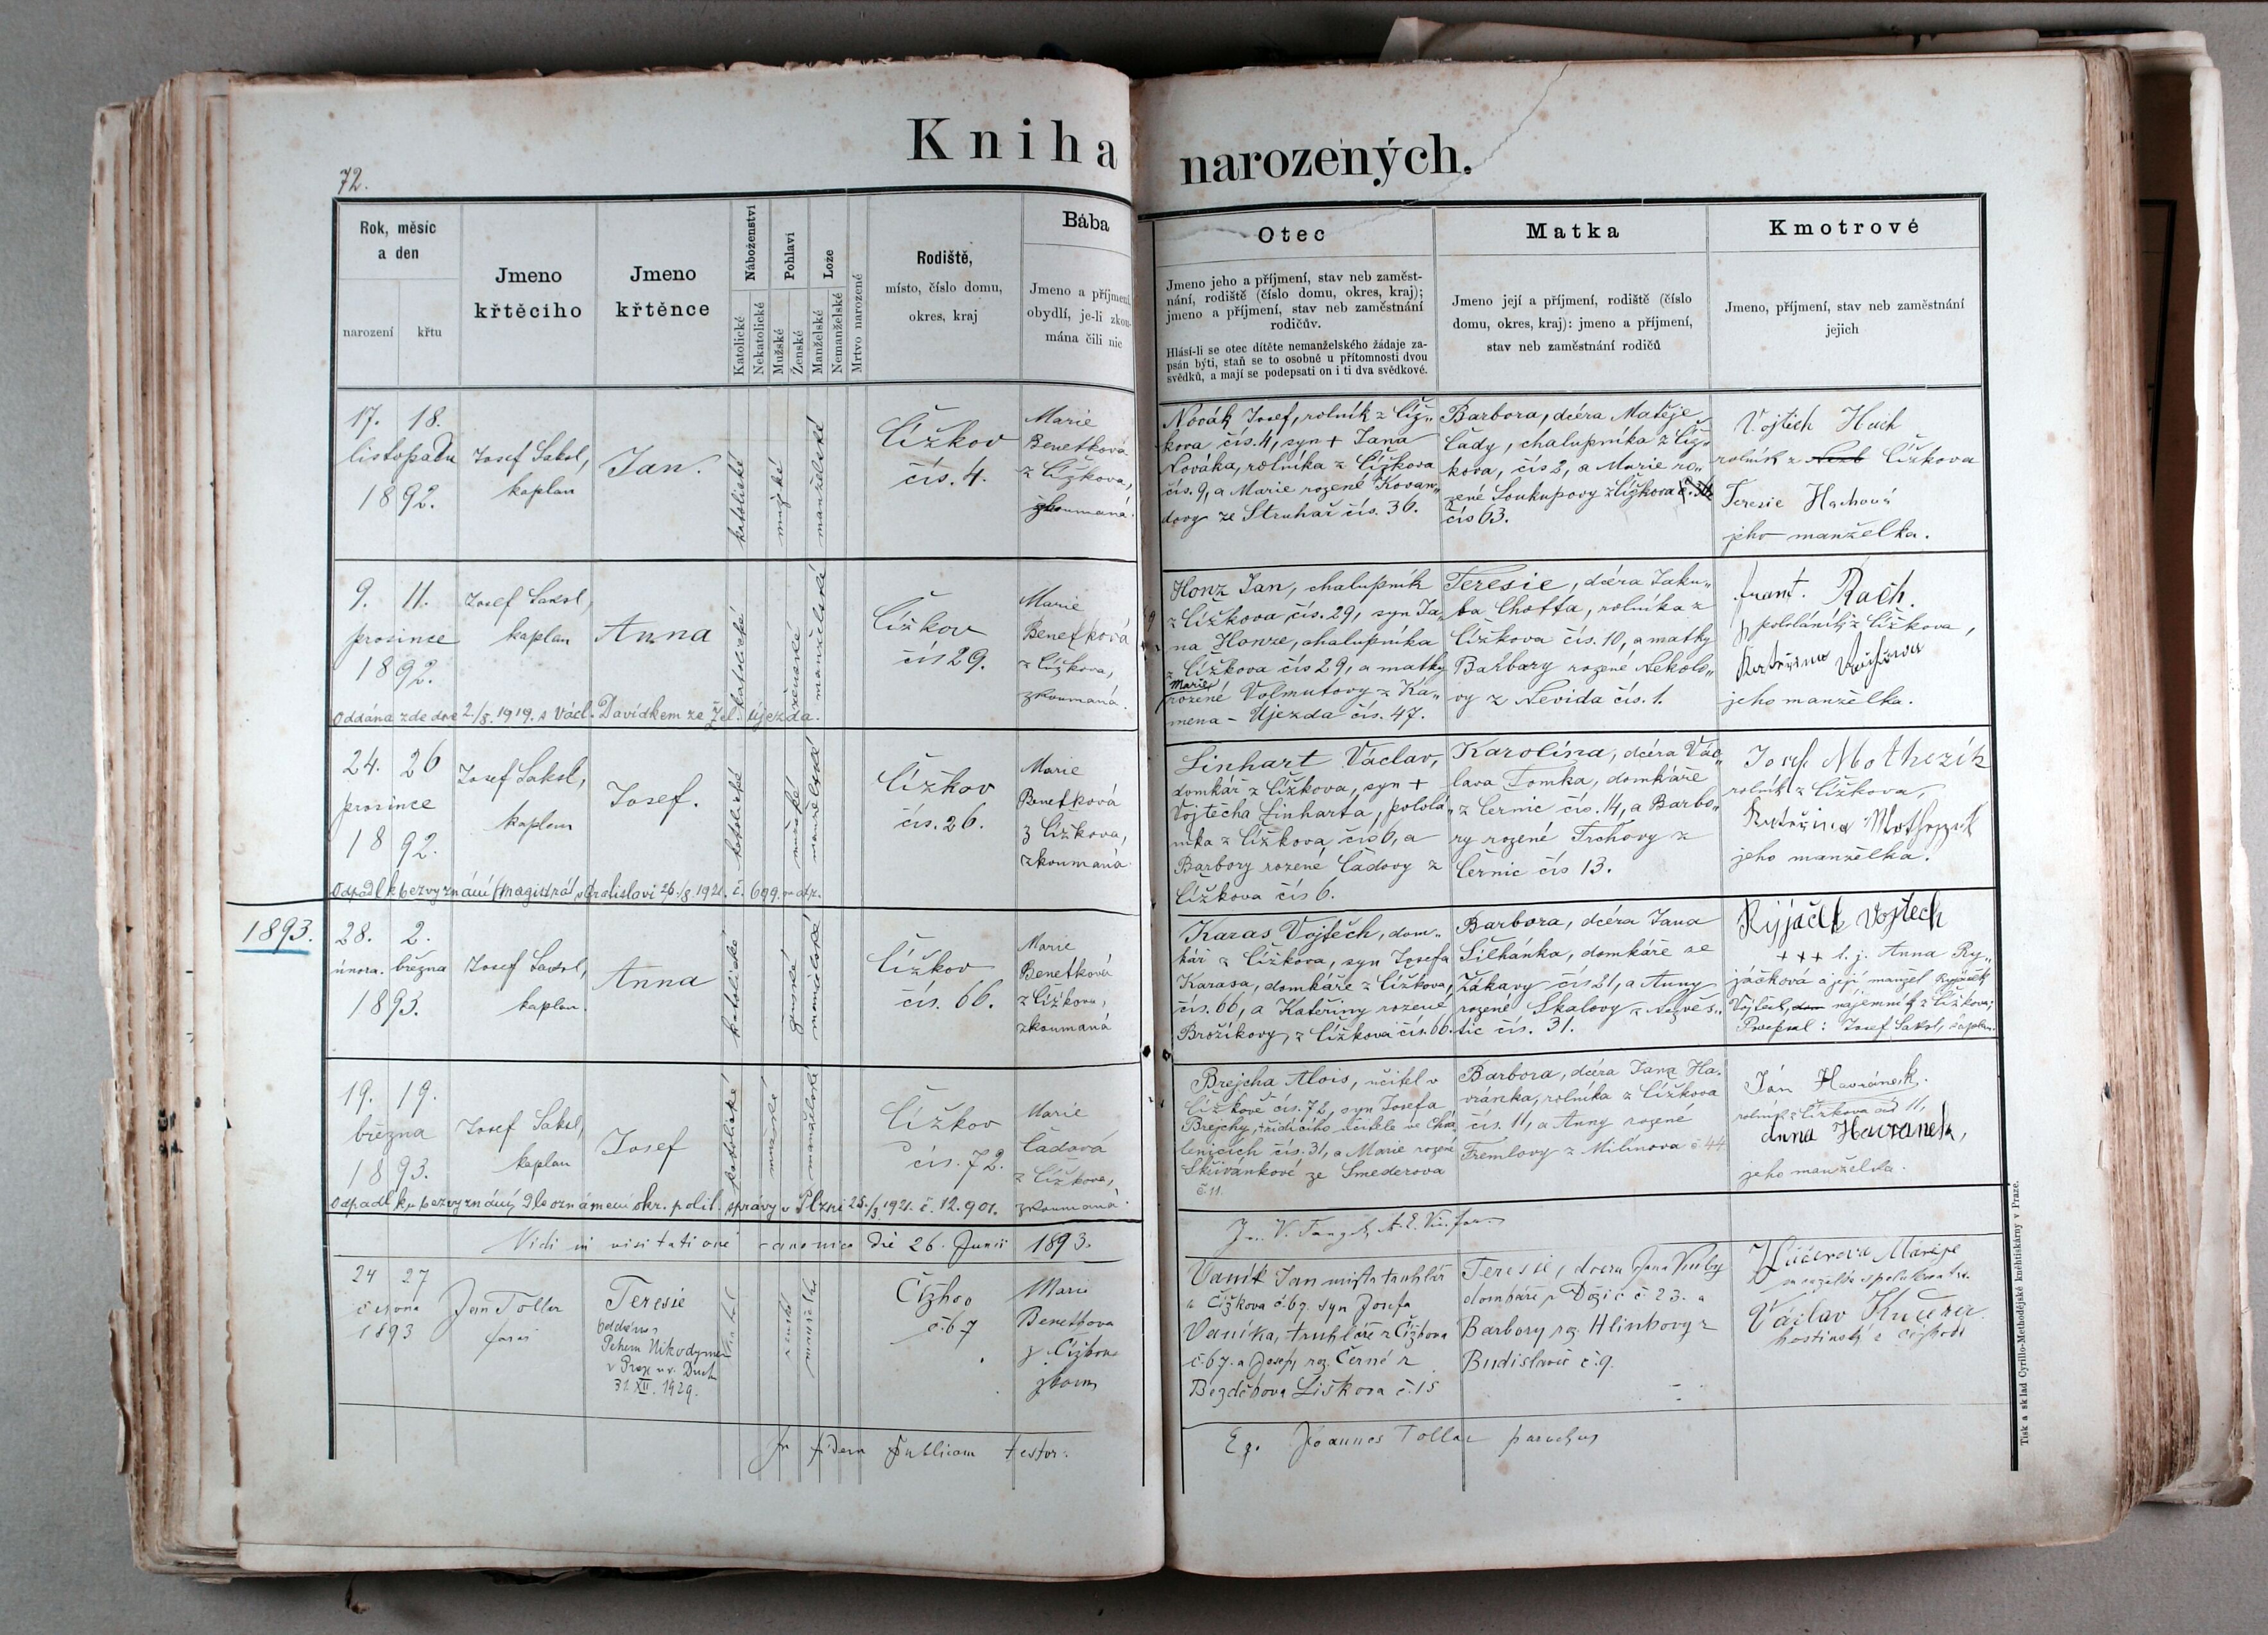 Kniha narozených.
72.
Rok, měsíc
a den
narození
křtu
Jmeno
křtěcího
Jmeno
křtěnce
Náboženství
Katolické
Nekatolické
Pohlaví
Mužské
Ženské
Lože
Manželské
Nemanželské
Mrtvo narozené
Rodiště,
místo, číslo domu,
okres, kraj
Bába
Jmeno a příjmení,
obydlí, je-li zkou-
mána čili nic
Otec
Jmeno jeho a příjmení, stav neb zaměst-
nání, rodiště (číslo domu, okres, kraj);
jmeno a příjmení, stav neb zaměstnání
rodičův.
Hlásí-li se otec dítěte nemanželského žádaje za-
psán býti, staň se to osobně u přítomnosti dvou
svědků, a mají se podepsati on i ti dva svědkové.
Matka
Jmeno její a příjmení, rodiště (číslo
domu, okres, kraj): jmeno a příjmení,
stav neb zaměstnání rodičů
Kmotrové
Jmeno, příjmení, stav neb zaměstnání
jejich
17. 18.
listopadu
1892.
Josef Saksl,
kaplan
Jan.
katolické
mužské
manželské
Čížkov
čís. 4.
Marie
Benetková
z Čížkova,
zkoumaná.
Novák Josef, rolník z Číž-
kova čís. 4, syn + Jana
Nováka, rolníka z Čížkova
čís. 9, a Marie rozené Kovan-
dovy ze Struhař čís. 36.
Barbora, dcéra Matěje
Čady, chalupníka z Číž-
kova, čís 2, a Marie ro-
zené Soukupovy z Čížkova
čís 63.
Vojtěch Hach
rolník z Čížkova
Teresie Hachová
jeho manželka.
9. 11.
prosince
1892.
Josef Saksl,
kaplan
Anna
katolické
ženské
manželské
Čížkov
čís 29.
Marie
Benetková
z Čížkova,
zkoumaná.
Oddána zde dne 2./8. 1919. s Václ. Davídkem ze Žel. Újezda.
Honz Jan, chalupník
z Čížkova čís. 29, syn Ja-
na Honze, chalupníka
z Čížkova čís 29, a matky
Marie
rozené Volmutovy z Ka-
mena-Újezda čís. 47.
Teresie, dcéra Jaku-
ba Chotta, rolníka z
Čížkova čís. 10, a matky
Barbary rozené Nekolo-
vy z Nevida čís. 1.
frant. Rach.
pololáník z Čížkova,
jeho manželka.
24. 26
prosince
1892.
Josef Saksl,
kaplan
Josef.
katolické
mužské
manželské
Čížkov
čís. 26.
Marie
Benetková
z Čížkova,
zkoumaná.
Odpadl k bezvyznání (magistrát v Bratislavi 26./8. 1921. č. 699.
Linhart Václav,
domkář z Čížkova, syn +
Vojtěcha Linharta, pololá-
níka z Čížkova čís 6, a
Barbory rozené Čádovy z
Čížkova čís 6.
Karolína, dcéra Vác-
lava Tomka, domkáře
z Černic čís. 14, a Barbo-
ry rozené Trchovy z
Černic čís 13.
Josef Mothejzík
rolník z Čížkova,
Kateřina Mothejzík
jeho manželka.
1893.
28. 2.
února. března
1893.
Josef Saksl,
kaplan.
Anna
katolické
ženské
manželské
Čížkov
čís. 66.
Marie
Benetková
z Čížkova,
zkoumaná
Karas Vojtěch, dom-
kář z Čížkova, syn Josefa
Karasa, domkáře z Čížkova,
čís. 66, a Kateřiny rozené
Brožíkovy, z Čížkova čís. 66.
Barbora, dcéra Jana
Šilhánka, domkáře ze
Žákavy čís 21, a Anny
rozené Skalovy z Nezvěs-
tic čís. 31.
Ryjáček Vojtech
+++ t. j. Anna Ry-
jáčková a její manžel Ryjáček
Vojtěch, nájemník z Čížkova;
Josef Saksl, kaplan.
19. 19.
března
1893.
Josef Saksl,
kaplan
Josef
katolické
mužské
manželské
Čížkov
čís. 72.
Marie
Čadová
z Čížkova,
zkoumaná.
Odpadl ku bezvyznání, dle oznámení okr. polit. správy v Plzni 25./3. 1921. č. 12.901.
Brejcha Alois, učitel v
Čížkově čís. 72, syn Josefa
Brejchy, řídícího učitele ve Chvá-
lenicích čís. 31, a Marie rozené
Skřivánkové ze Smederova
č. 11.
Barbora, dcéra Jana Ha-
vránka, rolníka z Čížkova
čís. 11, a Anny rozené
Fremlovy z Milínova č. 44
Ján Havránek,
rolník z Čížkova čís 11,
Anna Havranek,
jeho manželka.
Vidi in visitatione canonica die 26. Junii 1893.
24 27
června
1893
Jan Tollar
farář
Teresie
Oddána s
Petrem Nikodymem
v Praze u sv. Ducha
31. XII. 1929.
ženské
manželské
Čížkov
č. 67
Marie
Benetkova
z Čížkova
zkoum
Vaník Jan mistr truhlář
z Čížkova č. 67. syn Josefa
Vaníka, truhláře z Čížkova
č. 67. a Josefy roz. Černé z
Bezděkova Liškova č. 15
Teresie, dcera Jana Kuby
domkáře z Dožic č. 23. a
Barbory roz. Hlinkovy z
Budislavic č. 9.
Kučerova Marie
Václav Kučera
hostinský z Čížkova
In fidem publicam testor:
Joannes Tollar parochus
Tisk a sklad Cyrillo-Methodějské knihtiskárny v Praze.